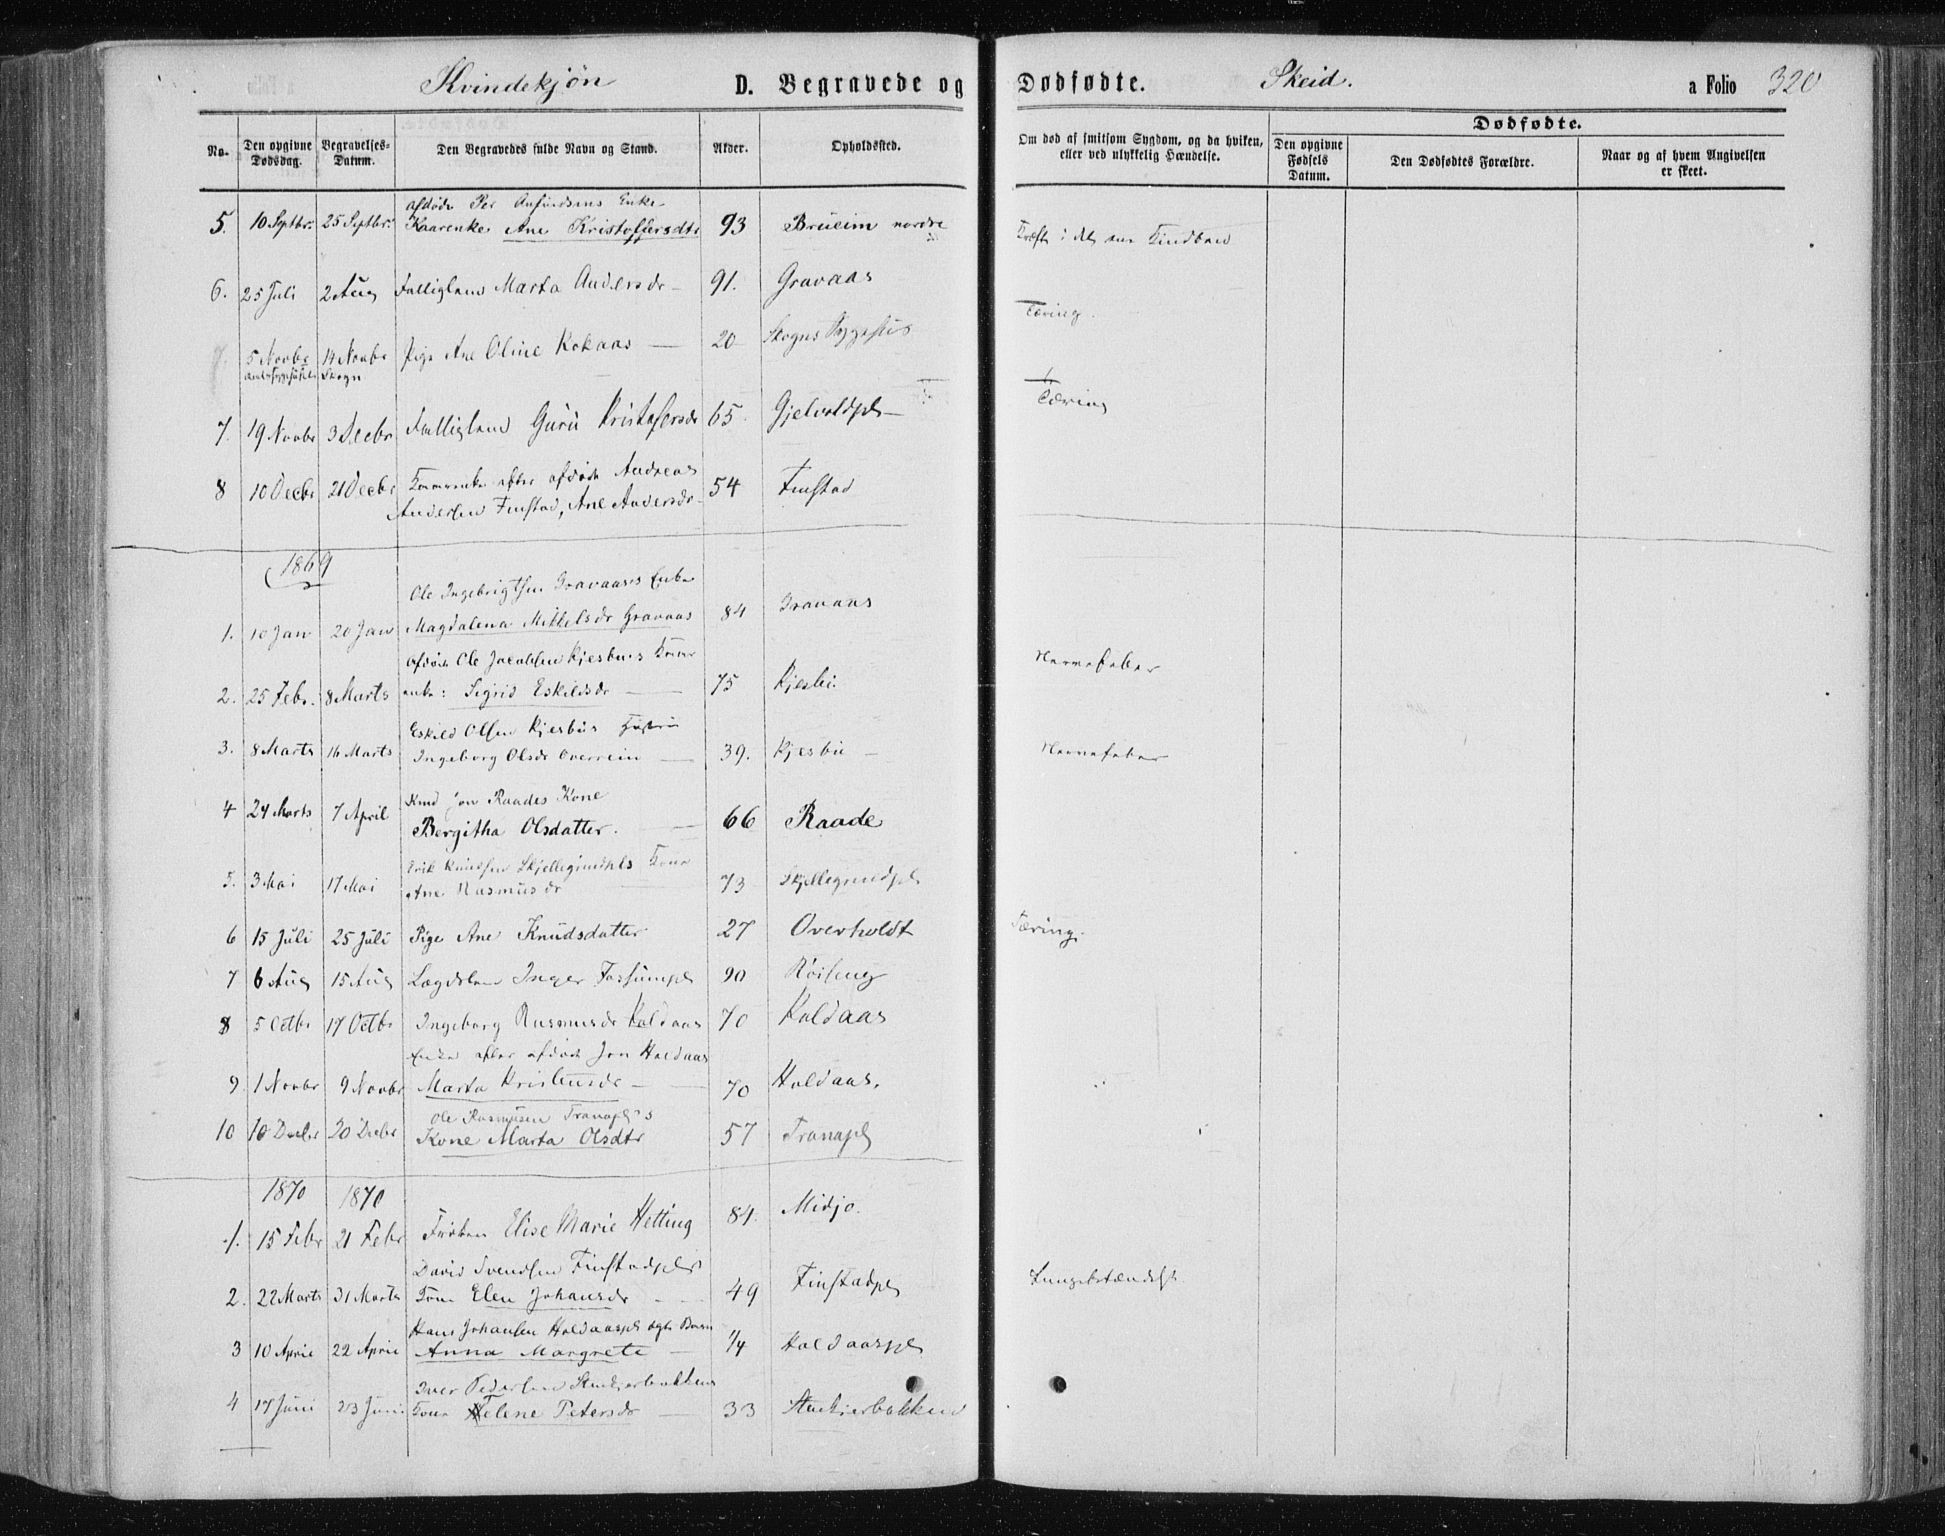 Kvindekjøn D. Begravede og Dødfødte. Skeid. a Folio 320
No. Den opgivne Dødsdag. Begravelses-Datum. Den Begravedes fulde Navn og Stand. Alder. Opholdssted. Om død af smitsom Sygdom, og da hvilken, eller ved ulykkelig Hændelse. Dødfødte. Den opgivne Fødsels Datum. Den Dødfødtes Forældre. Naar og af hvem Angivelsen er skeet.
afdøde Per Enke
5. 10 Septbr. 25 Septbr. Kaarenke Ane Kristoffersdtr 93 Brueim nordre Kræft i det ene Kindben
6. 25 Juli 2 Aug Fattiglem Marta Andersdr 91. Gravaas
Tæring.
7. 5 Novbr 14 Novbr Pige Ane Oline Kokaas 20 Skogns Sygehus
Skogn
Tæring
7. 19 Novbr 3 Decbr Fattiglem Guru Kristofersdr 65. Gjelvoldpl
8 10 Decbr 21 Decbr efter afdøde Andreas 54 Finstad
Andersen Finstad, Ane Andersdr
1869
Ole Ingebrigtsen Gravaas's Enke
1. 10 Jan 20 Jan Magdalena Mikkelsdr Gravaas 84 Gravaas
afdøde Ole Jacobsen Kjesbus Kaar
2. 25 Febr. 8 Marts enke: Sigrid Eskildsdr 75 Kjesbu. Nervefeber
Eskild Olsen Kjesbus Hustru
3. 8 Marts 16 Marts Ingeborg Olsdr Overrein 39. Kjesbu Nervefeber
Jon Raades Kone
4 24 Marts 7 April Bergitha Olsdatter. 66 Raade
Erik Knudsen Skjellegrindpls Kone
5. 3 Mai 17 Mai Ane Rasmusdr 73 Skjellegrindpl
6 15 Juli 25 Juli Pige Ane Knudsdatter 27 Overholdt Tæring.
7 6 Aug 15 Aug Lægdslem Inger Fossumpl 90 Røiseng
8 5 Octbr 17 Octbr Ingeborg Rasmusdr Koldaas 70 Koldaas
Enke efter afdøde Jon Holdaas
9. 1 Novbr 9 Novbr Marta Kristensdr 70 Holdaas.
Ole Rasmusen Tranapl's
10 10 Decbr 20 Decbr Kone Marta Olsdtr 57 Tranapl
1870 1870
1. 15 Febr 21 Febr Frøken Elise Marie Hetting 84. Midjo.
David Svendsen Finstadpls
2. 22 Marts 31 Marts Kone Elen Johansdr 49 Finstadpl Lungebetændelse
Hans Johansen Holdaaspl ægte Barn
3 10 April 22 April Anna Margrete 1/4 Holdaaspl
Iver Pedersen Stenkjerbakkens
4 17 Juni 23 Juni Kone Helene Petersdr 33 Stenkjerbakken